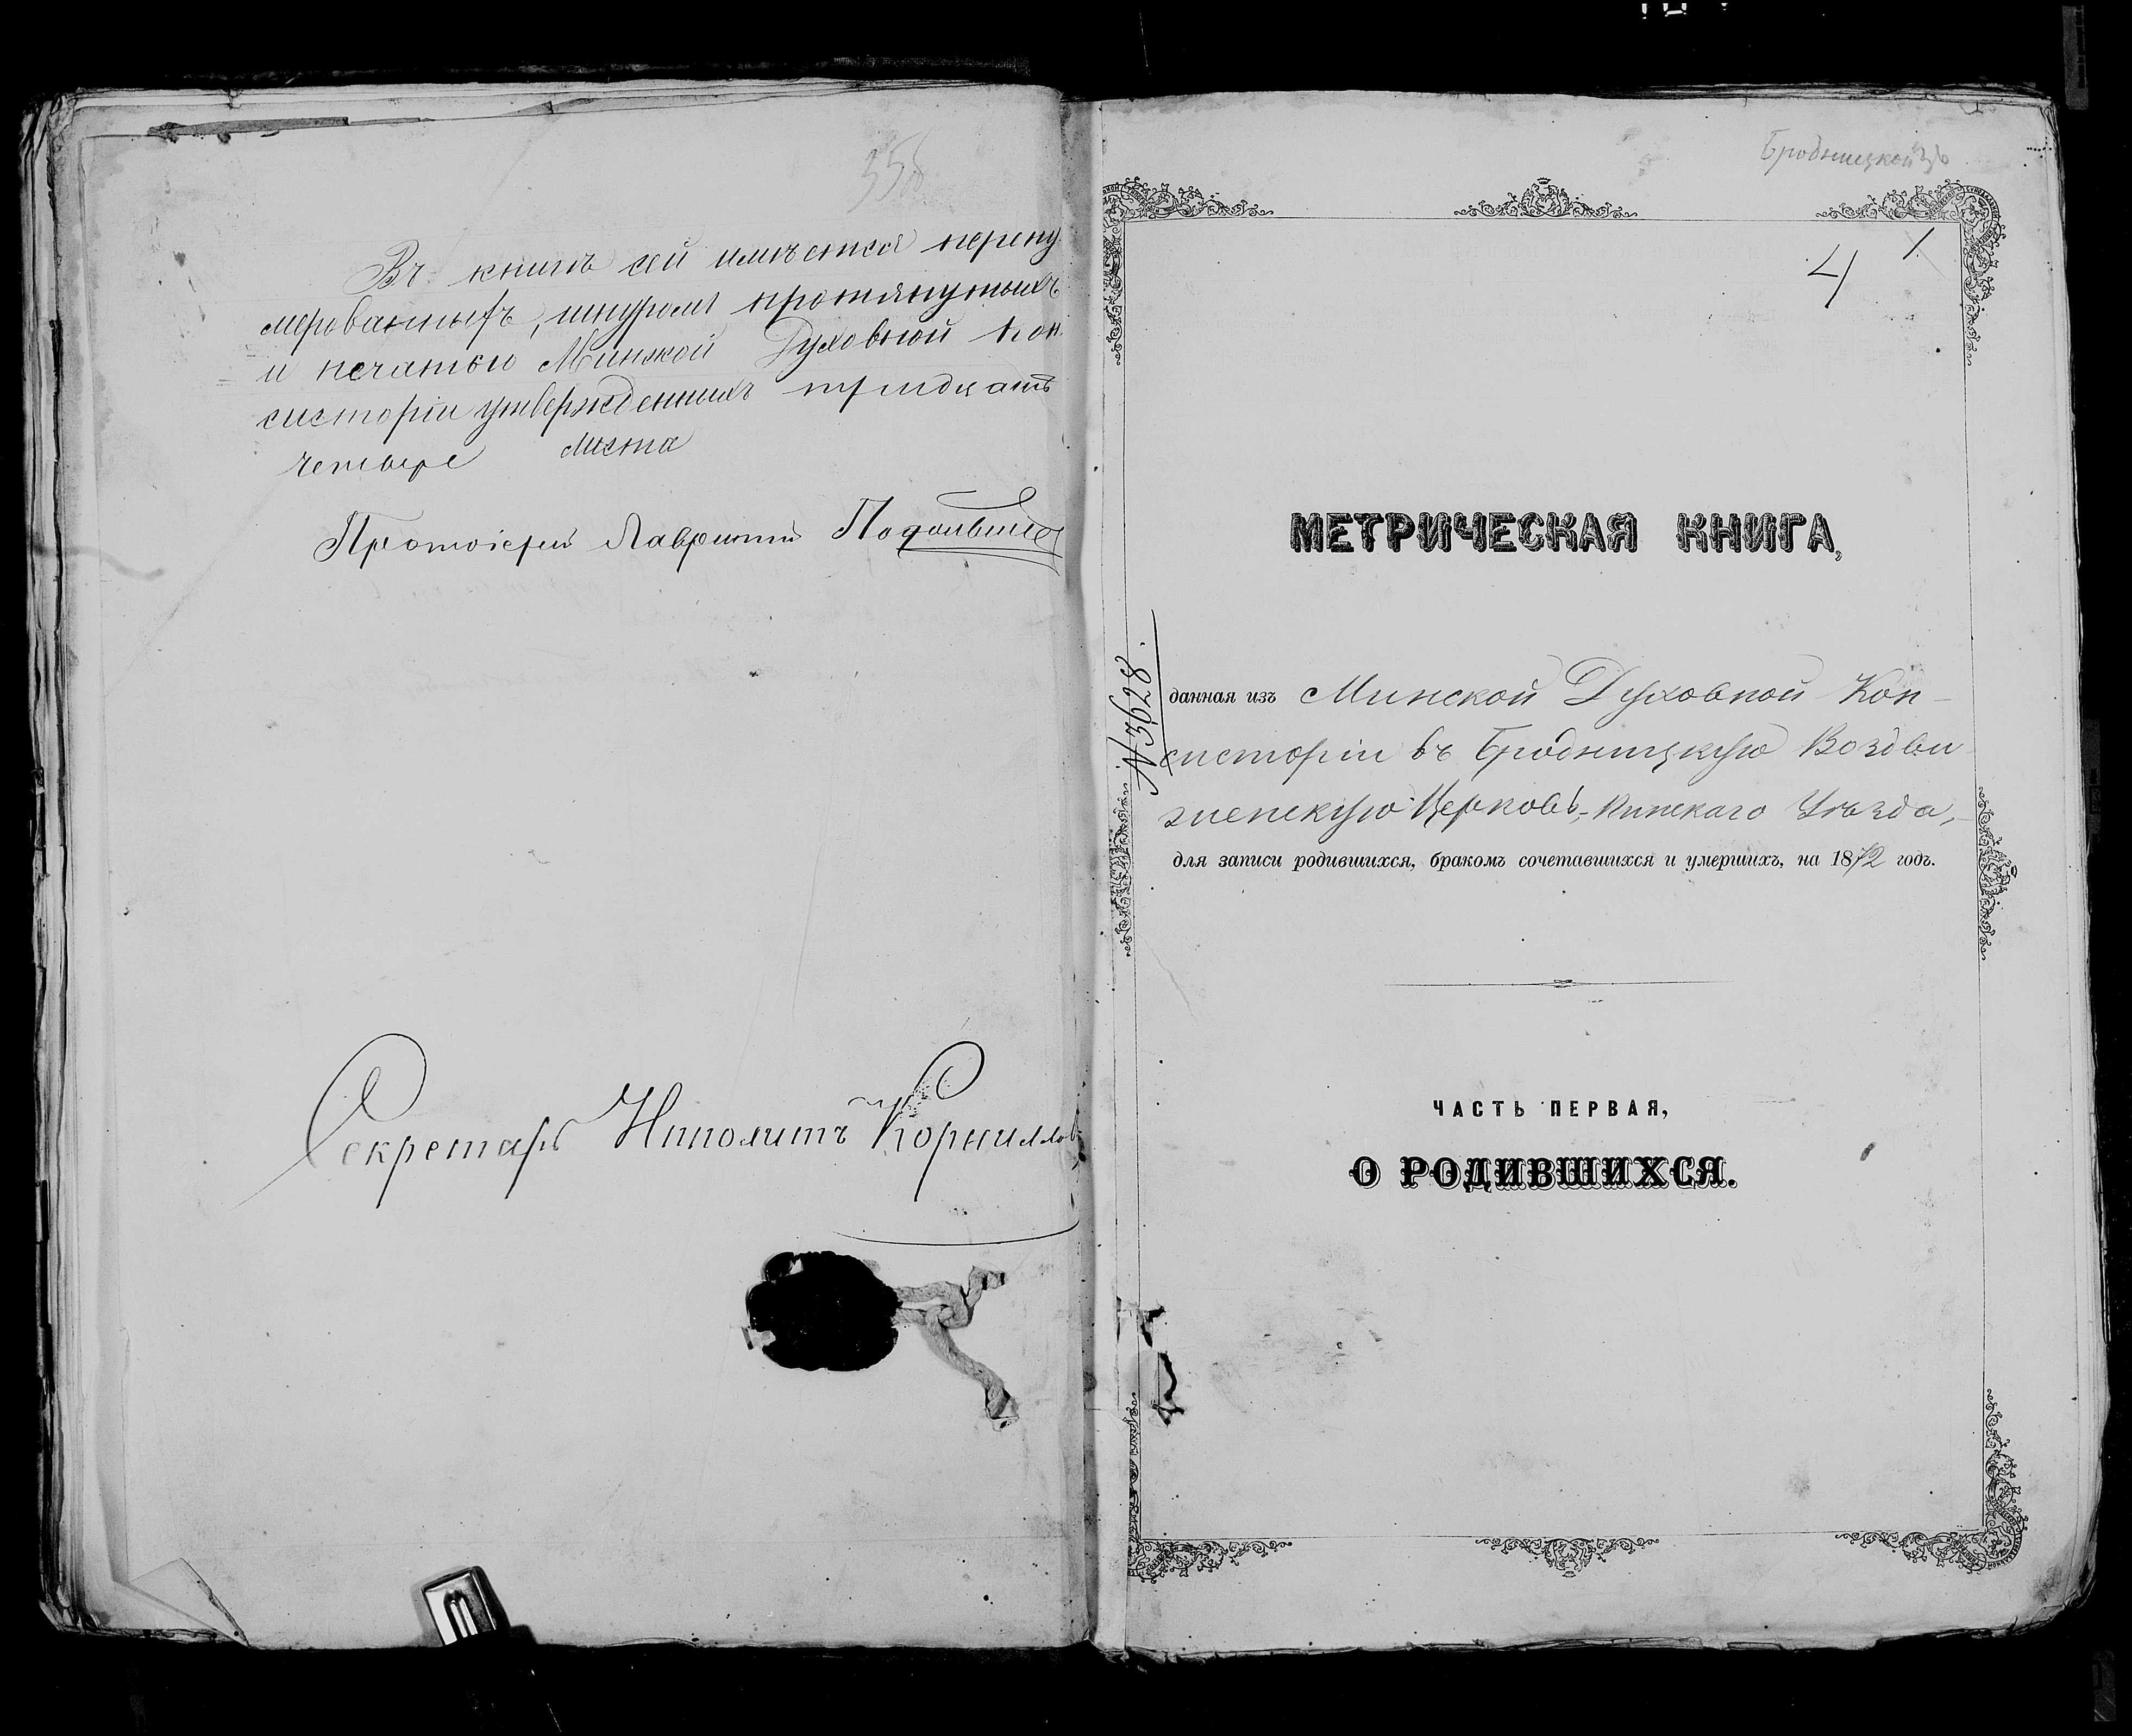 Въ книгѣ сей имѣется перену
мерованныхъ, шнуромъ протянутыхъ
и печатью Минской Духовной Кон
систоріи утвержденныхъ тридцать
четыре листа
Протоіерей Лаврентій
Секретарь Ипполитъ Корниллов
Бродницкой
4 1.
МЕТРИЧЕСКАЯ КНИГА,
№ 3628.
данная изъ Минской Духовной Кон-
систоріи въ Бродницкую Воздви
женскую Церковь, Пинскаго Уѣзда,
для записи родившихся, бракомъ сочетавшихся и умершихъ, на 1872 годъ.
ЧАСТЬ ПЕРВАЯ,
О РОДИВШИХСЯ.